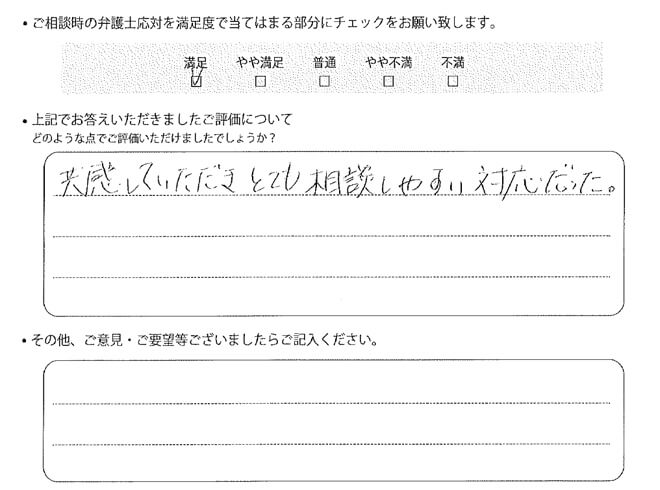 ・ご相談時の弁護士応対を満足度で当てはまる部分にチェックをお願い致します。
満足 やや満足 普通 やや不満 不満
☑ □ □ □ □
・上記でお答えいただきましたご評価について
どのような点でご評価いただけましたでしょうか？
共感していただきとても相談しやすい対応だった。
・その他、ご意見・ご要望等ございましたらご記入ください。